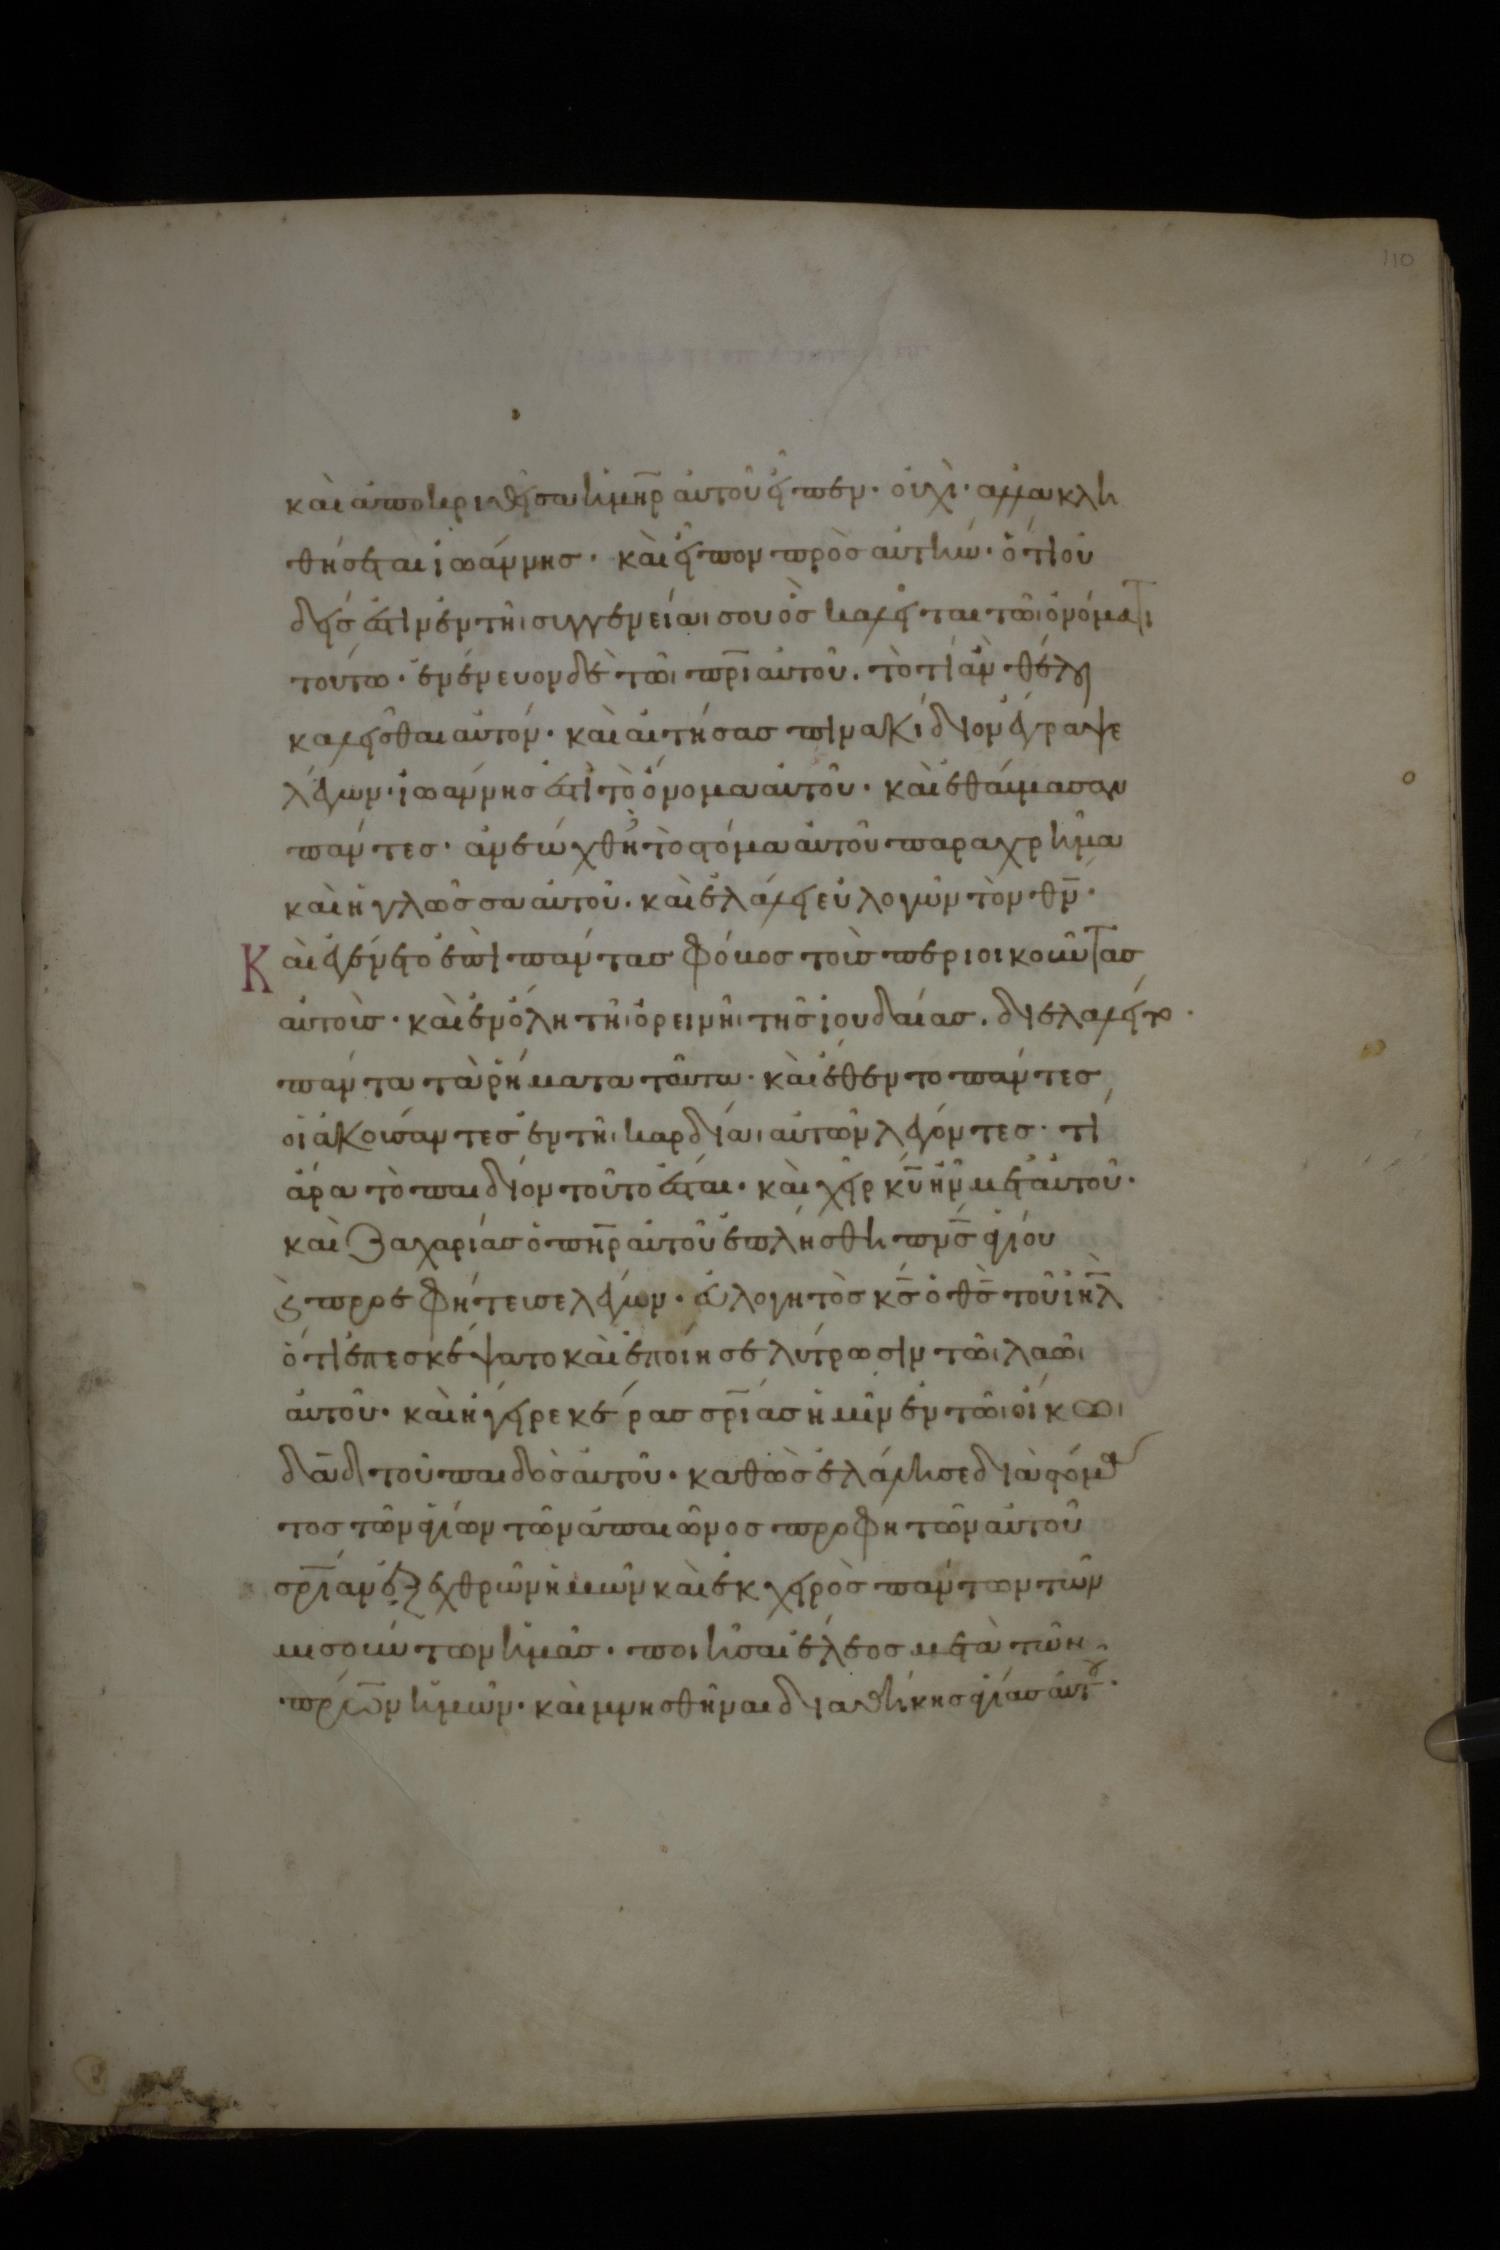 110
καὶ ἀποκριθεῖσα ἡ μη̅ρ αὐτοῦ εἶπεν· οὐχὶ· ἀλλα κλη
θήσεται ἰωάννησ· καὶ εἶπον πρὸσ αὐτήν· ὅτι οὐ
δείσ ἐστιν ἐν τῆι συγγενείαι σου ὃσ καλεῖται τῶι ὀνόματι
τούτω· ἐνένευον δὲ τῶι πρ̅ι αὐτοῦ. τὸ τί ἂν θέλει
καλεῖσθαι αὐτόν· καὶ αἰτήσασ πινακίδιον ἔγραψε
λέγων· ἰωαννησ ἐστὶ τὸ ὄνομα αὐτοῦ· καὶ ἐθαύμασαν
πάντεσ· ἀνεώχθη τὸ στόμα αὐτοῦ παραχρῆμα
καὶ ἡ γλῶσσα αὐτοῦ. καὶ ἐλάλει εὐλογῶν τὸν θν̅·
Καὶ ἐγένετο ἐπὶ πάντασ φόβοσ τοὺσ περιοικοῦντασ
αὐτοὺσ· καὶ ἐν ὅλη τῆι ὀρεινῆι τῆσ ἰουδαίασ. διελαλεῖτο·
πάντα τὰ ῥήματα ταῦτα· καὶ ἔθεντο πάντεσ
οἱ ἀκούσαντεσ ἐν τῆι καρδίαι αὐτῶν λέγοντεσ· τί
ἄρα τὸ παιδίον τοῦτο ἔσται· καὶ χεὶρ κυ̅ ἦν μετ αὐτοῦ·
καὶ Ζαχαρίασ ὁ πη̅ρ αὐτοῦ ἐπλήσθη πν̅σ ἁγίου
ϗ̀ προεφήτευσε λέγων· εὐλογητὸσ κσ̅ ὁ θσ̅ τοῦ ἰη̅λ
ὅτι ἐπεσκέψατο καὶ ἐποίησε λύτρωσιν τῶι λαῶι
αὐτοῦ· καὶ ἤγειρε κέρασ σρ̅ιάσ ἡμῖν ἐν τῶι οἴκωι
δα̅δ τοῦ παιδὸσ αὐτοῦ· καθὼσ ἐλάλησε διὰ στόμα
τοσ τῶν ἁγίων τῶν ἀπ αιῶνοσ προφητῶν αὐτοῦ
σρ̅ίαν ἐξ ἐχθρῶν ἡμῶν καὶ ἐκ χειρὸσ πάντων τῶν
μισούντων ἡμᾶσ· ποιῆσαι ἔλεοσ μετὰ τῶν
πρ̅ων ἡμῶν· καὶ μνησθῆναι διαθήκησ ἁγίασ αὐτοῦ·